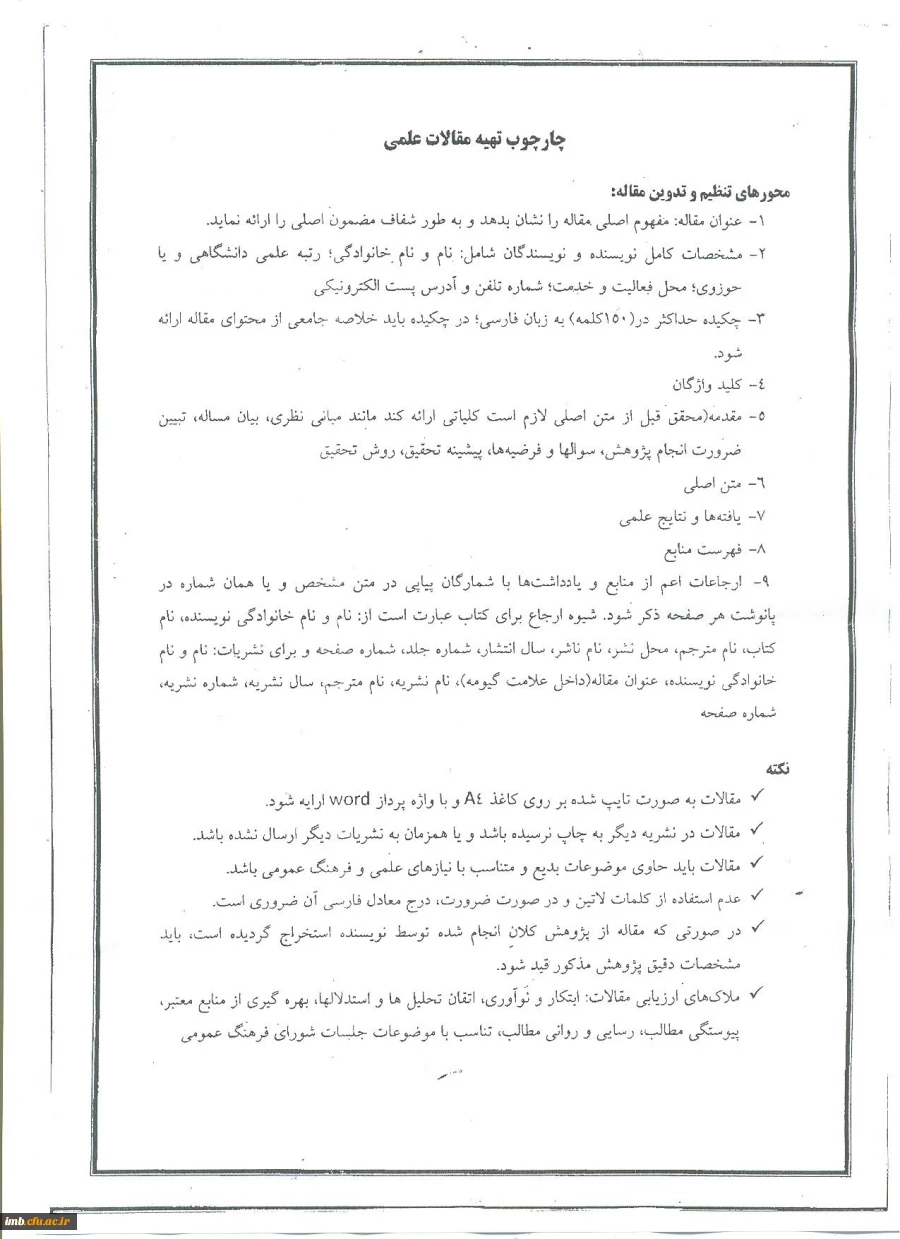 چارچوب تهیه مقالات علمی
محورهای تنظیم و تدوین مقاله:
۱- عنوان مقاله: مفهوم اصلی مقاله را نشان بدهد و به طور شفاف مضمون اصلی را ارائه نماید.
۲- مشخصات کامل نویسنده و نویسندگان شامل: نام و نام خانوادگی؛ رتبه علمی دانشگاهی و یا
حوزوی؛ محل فعالیت و خدمت؛ شماره تلفن و آدرس پست الکترونیکی
۳- چکیده حداکثر در(۱۵۰کلمه) به زبان فارسی؛ در چکیده باید خلاصه جامعی از محتوای مقاله ارائه
شود.
٤- کلید واژگان
۵- مقدمه(محقق قبل از متن اصلی لازم است کلیاتی ارائه کند مانند مبانی نظری، بیان مساله، تبیین
ضرورت انجام پژوهش، سوالها و فرضیه‌ها، پیشینه تحقیق، روش تحقیق
٦- متن اصلی
۷- یافته‌ها و نتایج علمی
۸- فهرست منابع
۹- ارجاعات اعم از منابع و یادداشت‌ها با شمارگان پیاپی در متن مشخص و یا همان شماره در
پانوشت هر صفحه ذکر شود. شیوه ارجاع برای کتاب عبارت است از: نام و نام خانوادگی نویسنده، نام
کتاب، نام مترجم، محل نشر، نام ناشر، سال انتشار، شماره جلد، شماره صفحه و برای نشریات: نام و نام
خانوادگی نویسنده، عنوان مقاله(داخل علامت گیومه)، نام نشریه، نام مترجم، سال نشریه، شماره نشریه،
شماره صفحه
نکته
✓ مقالات به صورت تایپ شده بر روی کاغذ A٤ و با واژه پرداز word ارایه شود.
✓ مقالات در نشریه دیگر به چاپ نرسیده باشد و یا همزمان به نشریات دیگر ارسال نشده باشد.
✓ مقالات باید حاوی موضوعات بدیع و متناسب با نیازهای علمی و فرهنگ عمومی باشد.
✓ عدم استفاده از کلمات لاتین و در صورت ضرورت، درج معادل فارسی آن ضروری است.
✓ در صورتی که مقاله از پژوهش کلان انجام شده توسط نویسنده استخراج گردیده است، باید
مشخصات دقیق پژوهش مذکور قید شود.
✓ ملاک‌های ارزیابی مقالات: ابتکار و نوآوری، اتقان تحلیل ها و استدلالها، بهره گیری از منابع معتبر،
پیوستگی مطالب، رسایی و روانی مطالب، تناسب با موضوعات جلسات شورای فرهنگ عمومی
imb.cfu.ac.ir